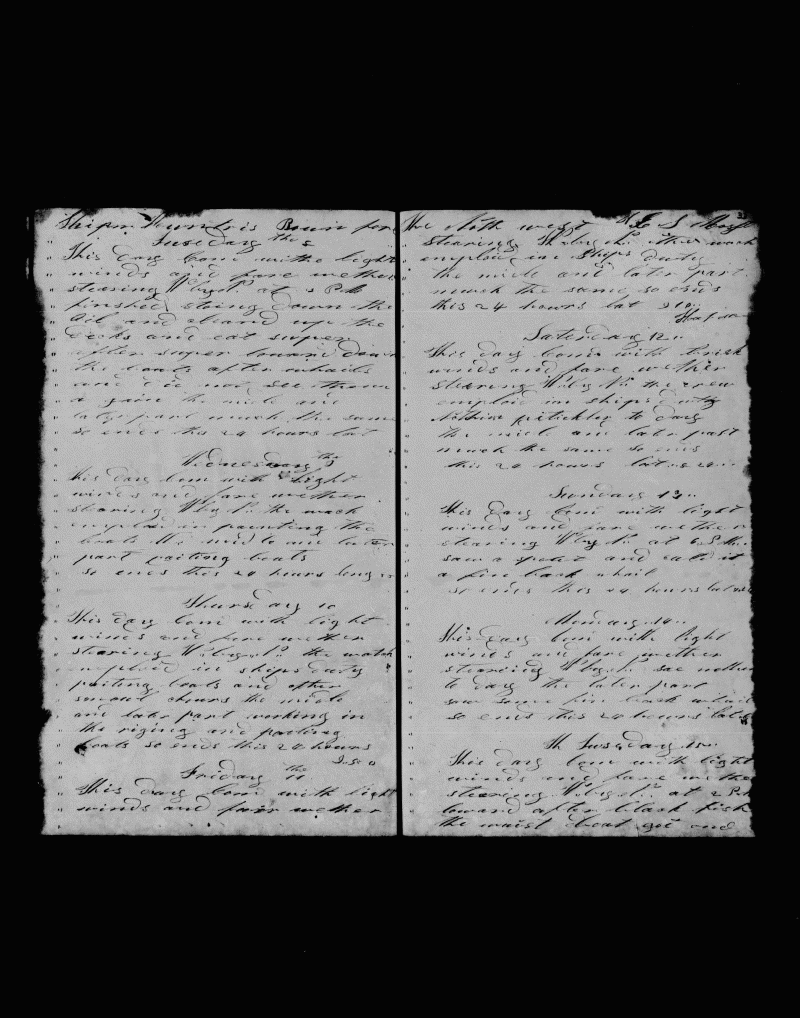 Ships Huntris Boun for
Tuesday the 8
This day Coms withe light
winds and fare wether
stearing W by N. at 2 PM
finshed stoing down the
Oil and cleand up the
decks and eat super
after super loward down
the boats after whails
and did not see them
a gain the midle and
later part much the same
so ends this 24 hours lat
Wednesday the 9
this day Com with light
winds and fare wether
stearing W by N. the wach
emploid in painting the
boats the midle and later
part paiting boats
so ends this 24 hours long
Thursday 10
This day Coms with light
winds and fare wether
stearing W by N. the watch
emploid in ships duty
paiting boats and other
smaul chours the midle
and later part working in
the riging and paiting
boats so ends this 24 hours
Friday the 11
This day Coms with light
winds and fair wether
the North west
stearing W by N. the wach
emploid in Ships duty
the midle and later part
much the same so ends
this 24 hours lat
Saterday 12
this day Coms with brisk
winds and fare wether
stearing W by N. the crew
emploid in ships duty
Nothing to day
the midle and later part
much the same so ends
this 24 hours lat
Sunday 13
this day Coms with light
winds and fare wether
stearing W by N. at
saw a spout and it
a fin back whail
so ends this 24 hours lat
Monday 14
This day Coms with light
winds and fare wether
stearing W by N. see nothing
to day the later part
saw some fin back whail
so ends this 24 hours lat
Tuesday 15
This day Coms with light
winds and fare wether
stearing W by N. at 2 PM
loward after black fish
the waist boat got one